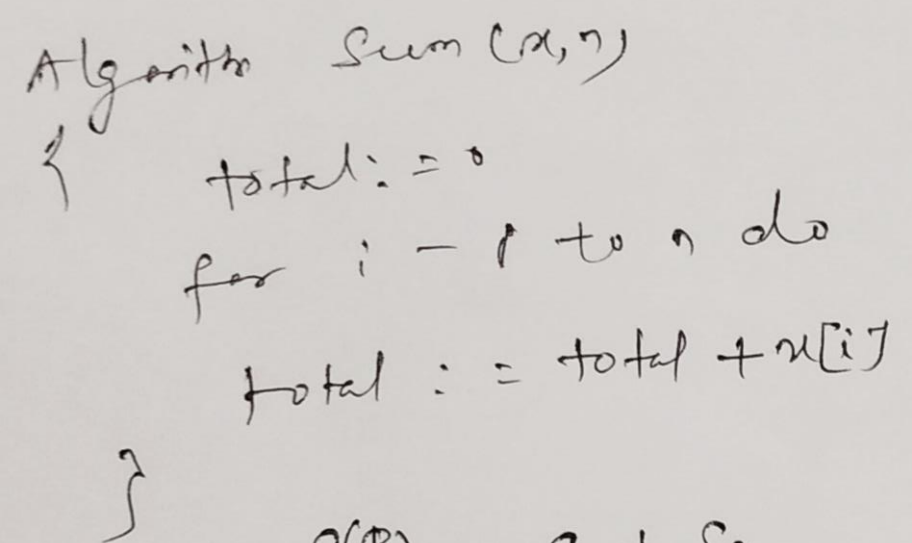 Algorithm Sum (x, n)
{
total : = 0
for i - 1 to n do
total : = total + x[i]
}